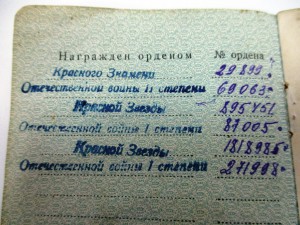 Награжден орденом № ордена
Красного Знамени 29899
Отечественной войны II степени 69063
Красной Звезды 895451
Отечественной войны I степени 87005
Красной Звезды 1818985
Отечественной войны I степени 271998